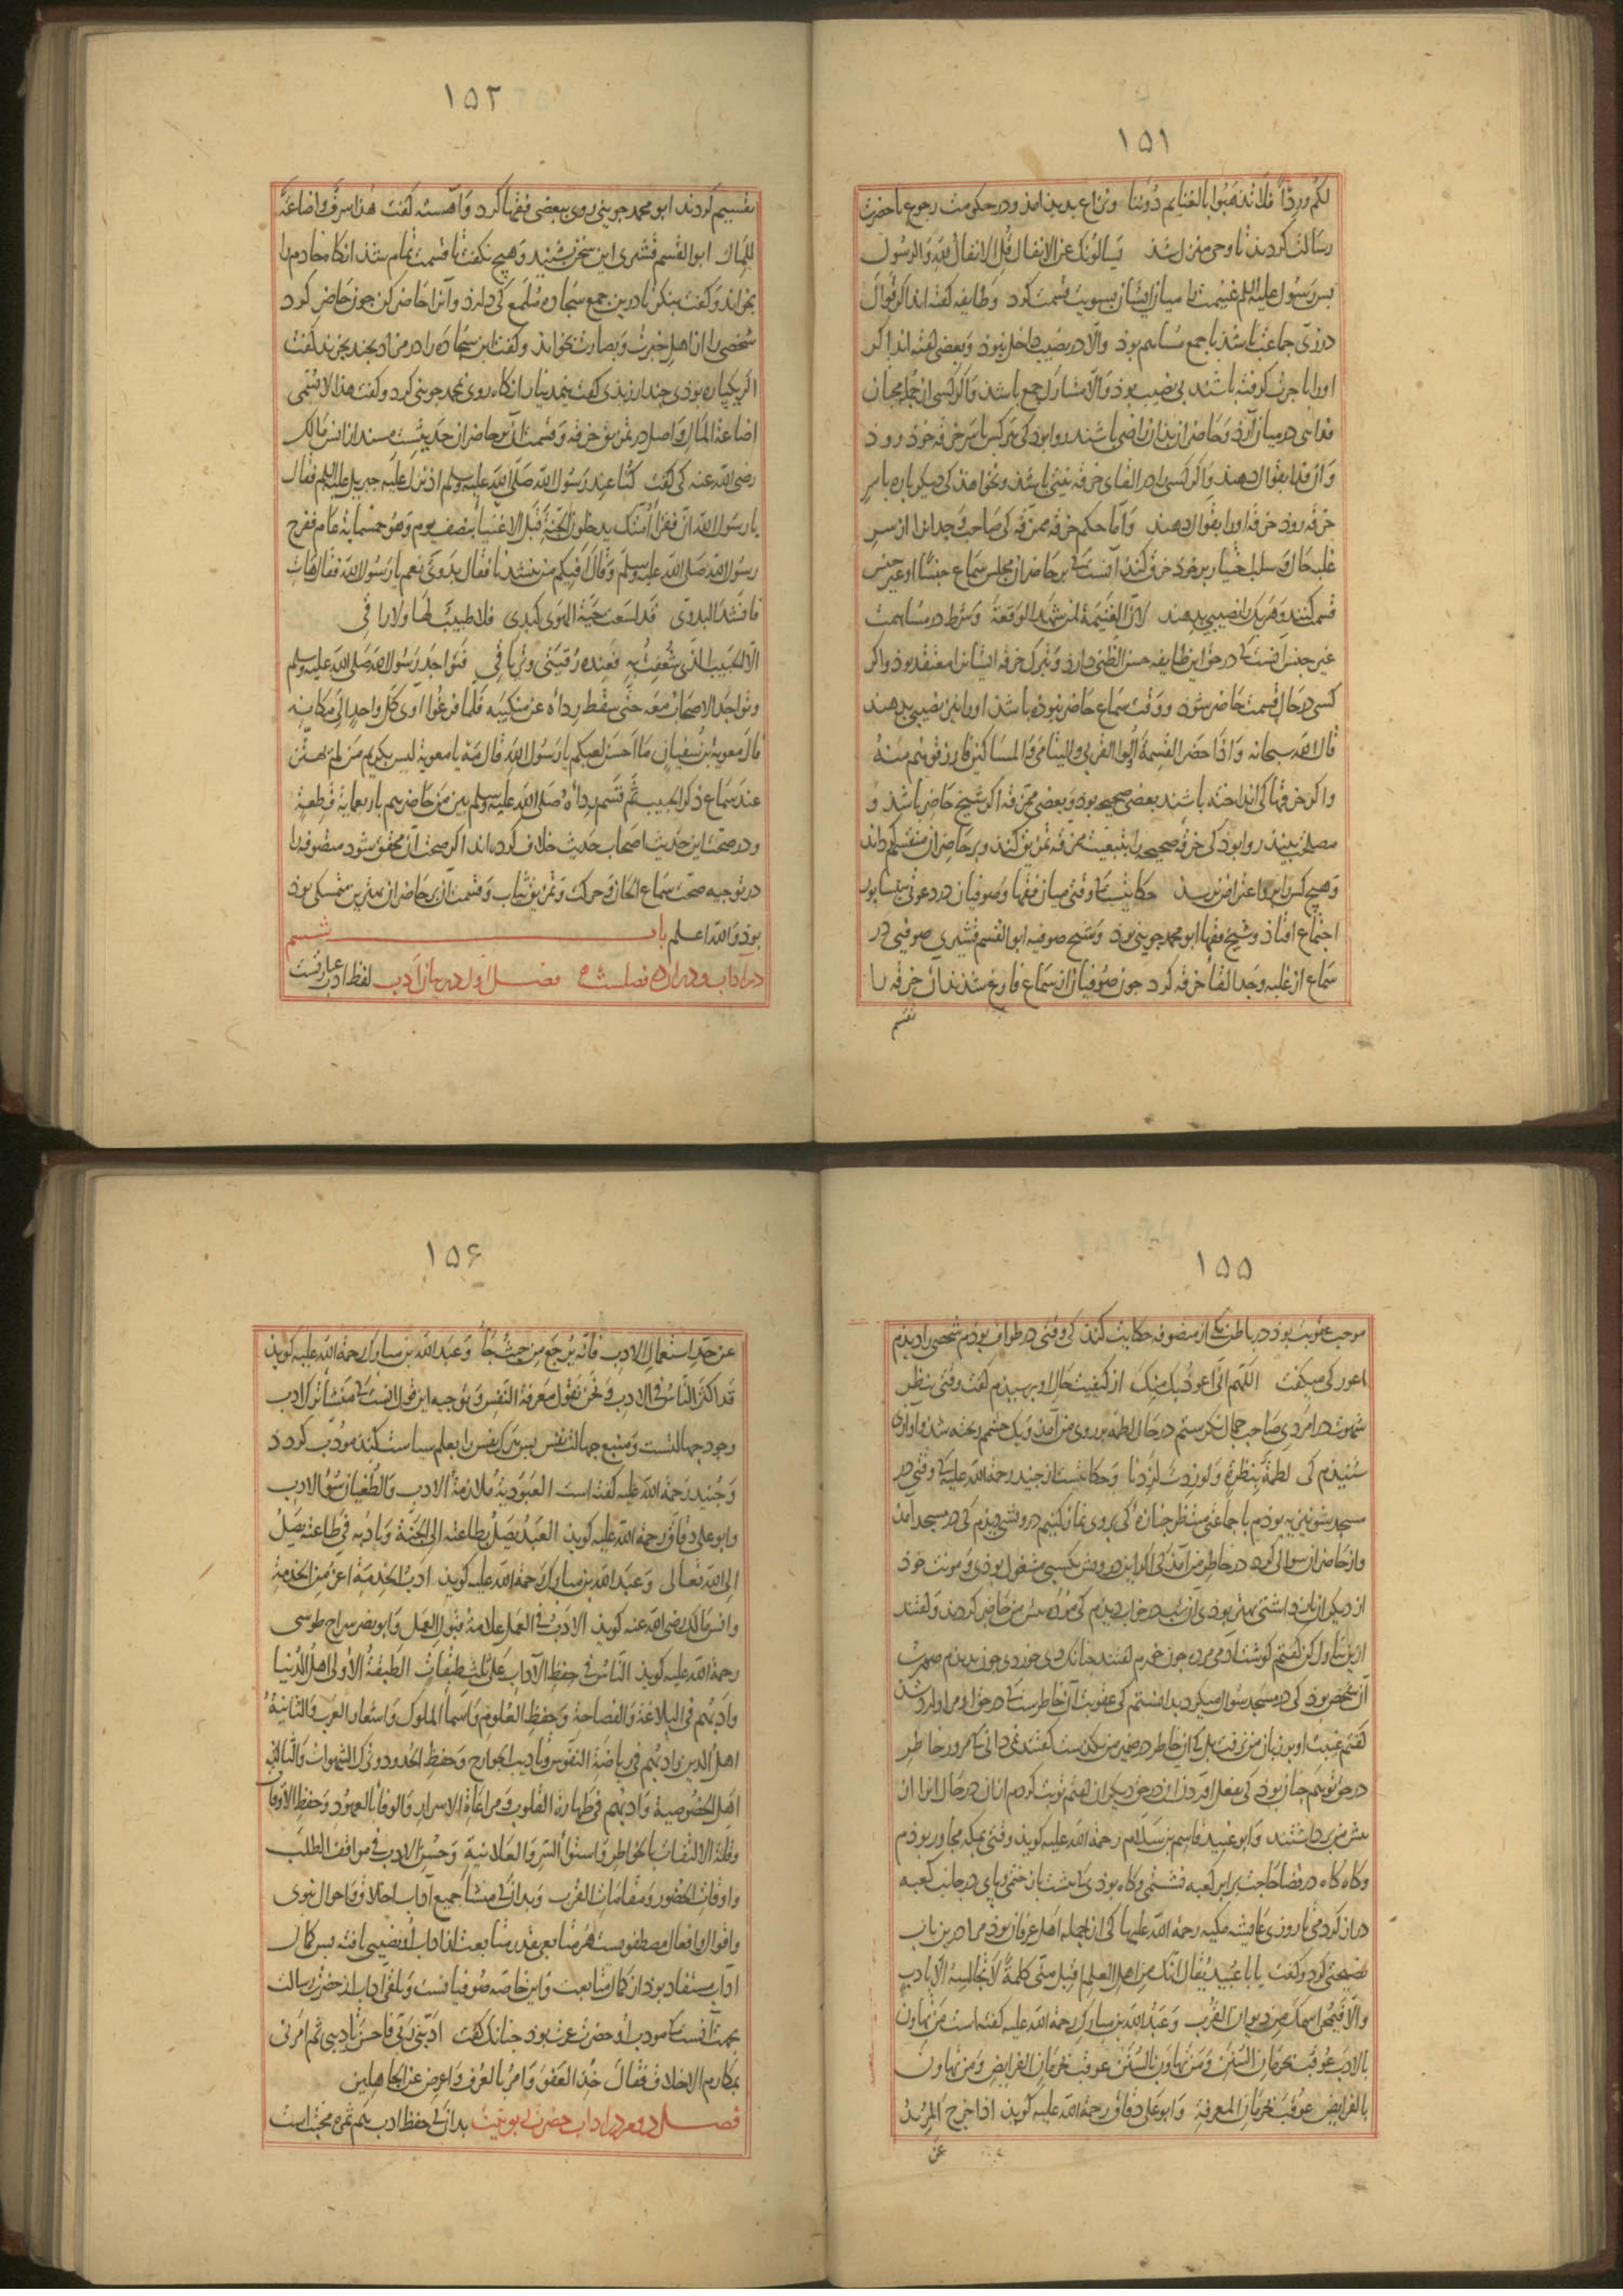 ١٥١
لكم ورداً فلا تذهبوا بالغنايم دوننا ونزاع بدید آمذ ودر حكومت رجوع با حضرت
رسالت كردند تا وحی منزل شد يسألونك عن الانفال قل الانفال لله والرسول
بس رسول علیه السلم غنیمت را میان ایشان بسویت قسمت كرد وطایفه كفته اند اكر قوال
در زی جماعت باشد با جمع مساهم بوذ والا در نصیب داخل نبوذ وبعضی كفته اند اكر
او را با جرت كرفته باشند بی نصیب بوذ والا مشارك جمع باشد واكر كسی از جمله محبان
فدائی در میان آرد وحاضران بدان راضی باشند روا بوذ كی هر كس با سر خرقه خوذ روذ
وآن فدا بقوال دهند واكر كسی را در القای خرقه نیتی باشد ونخواهذ كی دیكر باره با سر
خرقه روذ خرقه او را بقوال دهند واما حكم خرقه ممزقه كی صاحب وجد آنرا از سر
غلبه حال وسلب اختیار بر خوذ خرق كند آنست كی بر حاضران مجلس سماع جنسا او غیر جنس
قسمت كنند وهر یك را نصیبی بدهند لان الغنیمة لمن شهد الوقعة وشرط در مساهمت
غیر جنس آنست كی در حق این طایفه حسن الظنی دارذ وبتبرك خرقه ایشان را معتقد بوذ واكر
كسی در حال قسمت حاضر شوذ ووقت سماع حاضر نبوذه باشد او را نیز نصیبی بدهند
قال الله سبحانه واذا حضر القسمة اولوا القربی والیتامی والمساكین فارزقوهم منه
واكر خرقها كی انداخته باشند بعضی صحیح بوذ وبعضی ممزقه اكر شیخ حاضر باشد و
مصلحت بیند روا بوذ كی خرقه صحیحه را بتبعیت ممزقه تمزیق كند وبر حاضران منقسم كرداند
وهیچ كس را برو اعتراض نرسد حكایتست كی وقتی میان فقها وصوفیان در دعوتی بنیسابور
اجتماع افتاذ وشیخ فقها ابو محمد جوینی بوذ وشیخ صوفیه ابو القسم قشیری صوفیی در
سماع از غلبه وجد القاء خرقه كرد جون صوفیان از ان سماع فارغ شدند آن خرقه را
تقسیم
١٥٢
تقسیم كردند ابو محمد جوینی روی ببعضی فقها كرد وآهسته كفت هذا سرف واضاعة
للمال ابو القسم قشیری این سخن بشنید وهیچ نكفت تا قسمت تمام شذ آنكاه خادم را
بخواند وكفت بنكر تا درین جمع سجاده ملمع كی دارذ وآنرا حاضر كن جون حاضر كرد
شخصی را از اهل خبرت وبصارت بخواند وكفت این سجاده را در مزاد بجند بخرند كفت
اكر یكپاره بوذی جند ارزیدی كفت بنیم دینار آنكاه روی بمحمد جوینی كرد وكفت هذا لا یسمی
اضاعة المال واصل در تمزیق خرقه وقسمت آن بر حاضران حدیثیست مسند از انس مالك
رضی الله عنه كی كفت كنا عند رسول الله صلی الله علیه وسلم اذ نزل علیه جبریل علیه السلم فقال
یا رسول الله ان فقراء امتك یدخلون الجنة قبل الاغنیاء بنصف یوم وهو خمسمائة عام ففرح
رسول الله صلی الله علیه وسلم وقال أفیكم من ینشدنا فقال بدوی نعم یا رسول الله فقال هات
فانشد البدوی قد لسعت حیة الهوی كبدی فلا طبیب لها ولا راقی
الا الحبیب الذی شغفت به فعنده رقیتی وتریاقی فتواجد رسول الله صلی الله علیه وسلم
وتواجد الاصحاب معه حتی سقط رداه عن منكبیه فلما فرغوا اوی كل واحد الی مكانه
قال معویة بن سفیان ما احسن لعبكم یا رسول الله قال مه یا معویة لیس بكریم من لم یهتز
عند سماع ذكر الحبیب ثم قسم رداه صلی الله علیه وسلم بین من حاضرهم باربعمایة قطعة
ودر صحت این حدیث اصحاب حدیث خلاف كرده اند اكر صحت آن محقق شود متصوفه را
در توجیه صحت سماع الحان وحركت وتمزیق ثیاب وقسمت آن بر حاضران بهترین متمسكی بوذ
بوذ والله اعلم باب ششم
در آداب ودر او ده فصلست فصل اول در بیان ادب لفظ ادب عبارتست
١٥٥
موجب عقوبت بوذ در باطن یكی از متصوفه حكایت كند كی وقتی در طواف بوذم شخصی را دیذم
اعور كی میكفت اللهم انی اعوذ بك منك از كیفیت حال او برسیدم كفت وقتی بنظر
شهوت در امردی صاحب جمال نكرستم در حال لطمه بر روی من آمد ویك چشمم ریخته شد وآوازی
شنیذم كی لطمة بنظرة ولو زدت لزدنا وحكایتست از جنید رحمة الله علیه كی وقتی در
مسجد شونیزیه بوذم با جماعتی منتظر جنازه كی بر وی نماز كنیم درویشی دیذم كی در مسجد آمذ
واز حاضران سوالی كرد در خاطر من آمد كی اكر این درویش بكسبی مشغول بوذی ومونت خوذ
از دیكران باز داشتی بهتر بوذی آن شب در خواب دیذم كی مرده بیش من حاضر كردند وكفتند
ازین تناول كن كفتم كوشت آدمی مرده جون خورم كفتند جنانك دی خوردی جون بدیذم صورت
آن شخص بوذ كی در مسجد سوال میكرد بدانستم كی عقوبت آن خاطرست كی در حق او مرا وارد شد
كفتم غیبت او بر زبان من نرفت بل كی آن خاطر در ضمیر من بكذشت كفتند نمی دانی كه مرور خاطر
در حق تو هم جنان بوذ كی بفعل آورذن از در حق دیكران كفتم توبت كردم از ان در حال آنرا از
بیش من برداشتند وابو عبید قاسم بن سلام رحمة الله علیه كوید وقتی بمكه مجاور بوذم
وكاه كاه در قضا حاجت برابر كعبه نشستمی وكاه بوذی كه بشت باز خفتمی وپای در جانب كعبه
دراز كردمی تا روزی عایشه مكیه رحمة الله علیها كی از جمله اهل عرفان بوذ مرا درین باب
نصیحتی كرد وكفت یا با عبید یقال انك من اهل العلم اقبل منی كلمة لا تجالسه الا بادب
والا فیمحی اسمك من دیوان القرب وعبد الله بن مبارك رحمة الله علیه كفته است من تهاون
بالادب عوقب بحرمان السنن ومن تهاون بالسنن عوقب بحرمان الفرایض ومن تهاون
بالفرایض عوقب بحرمان المعرفة وابو علی دقاق رحمة الله علیه كویذ اذا خرج المرید
عن
١٥٦
عن حد استعمال الادب فانه یرجع من حیث جاء وعبد الله بن مبارك رحمة الله علیه كوید
قد اكثر الناس فی الادب ونحن نقول معرفة النفس وتوجیه این قول آنست كی منشأ ترك ادب
وجود جهالتست ومنبع جهالت نفس بس هرك نفس را بعلم سیاست كند مودب كردد
وجنید رحمة الله علیه كفته است العبودیة ملازمة الادب والطغیان سوء الادب
وابو علی دقاق رحمة الله علیه كوید العبد یصل بطاعته الی الجنة وبادبه فی طاعته یصل
الی الله تعالی وعبد الله بن مبارك رحمة الله علیه كوید ادب الخدمة اعز من الخدمة
وانس مالك رضی الله عنه كوید الادب فی العمل علامة قبول العمل وابو نصر سراج طوسی
رحمة الله علیه كوید الناس فی حفظ الآداب علی ثلث طبقات الطبقة الأولی اهل الدنیا
وادبهم فی البلاغة والفصاحة وحفظ العلوم واسماء الملوك واشعار العرب والثانیة
اهل الدین وادبهم فی ریاضة النفوس وتادیب الجوارح وحفظ الحدود وترك الشهوات والثالثة
اهل الخصوصیة وادبهم فی طهارة القلوب ومراعاة الاسرار والوفاء بالعهود وحفظ الاوقات
وقلة الالتفات بالخواطر واستواء السر والعلانیة وحسن الادب فی مواقف الطلب
واوقات الحضور ومقامات القرب وبدانك منشأ جمیع آداب اخلاق واحوال نبوی
واقوال وافعال مصطفویست هر متابعی بقدر متابعت از آداب او نصیبی یافته بس كمال
آداب مستفاد بوذ از كمال متابعت واین خاصه صوفیانست وتلقی آداب از حضرت رسالت
بجهت آنست كه مودب او حضرت عزت بوذ جنانك كفت ادبنی ربی فاحسن تادیبی ثم امرنی
بمكارم الاخلاق فقال خذ العفو وامر بالعرف واعرض عن الجاهلین
فصل دوم در آداب حضرت ربوبیت بدانك حفظ ادب هم ثمره محبتست